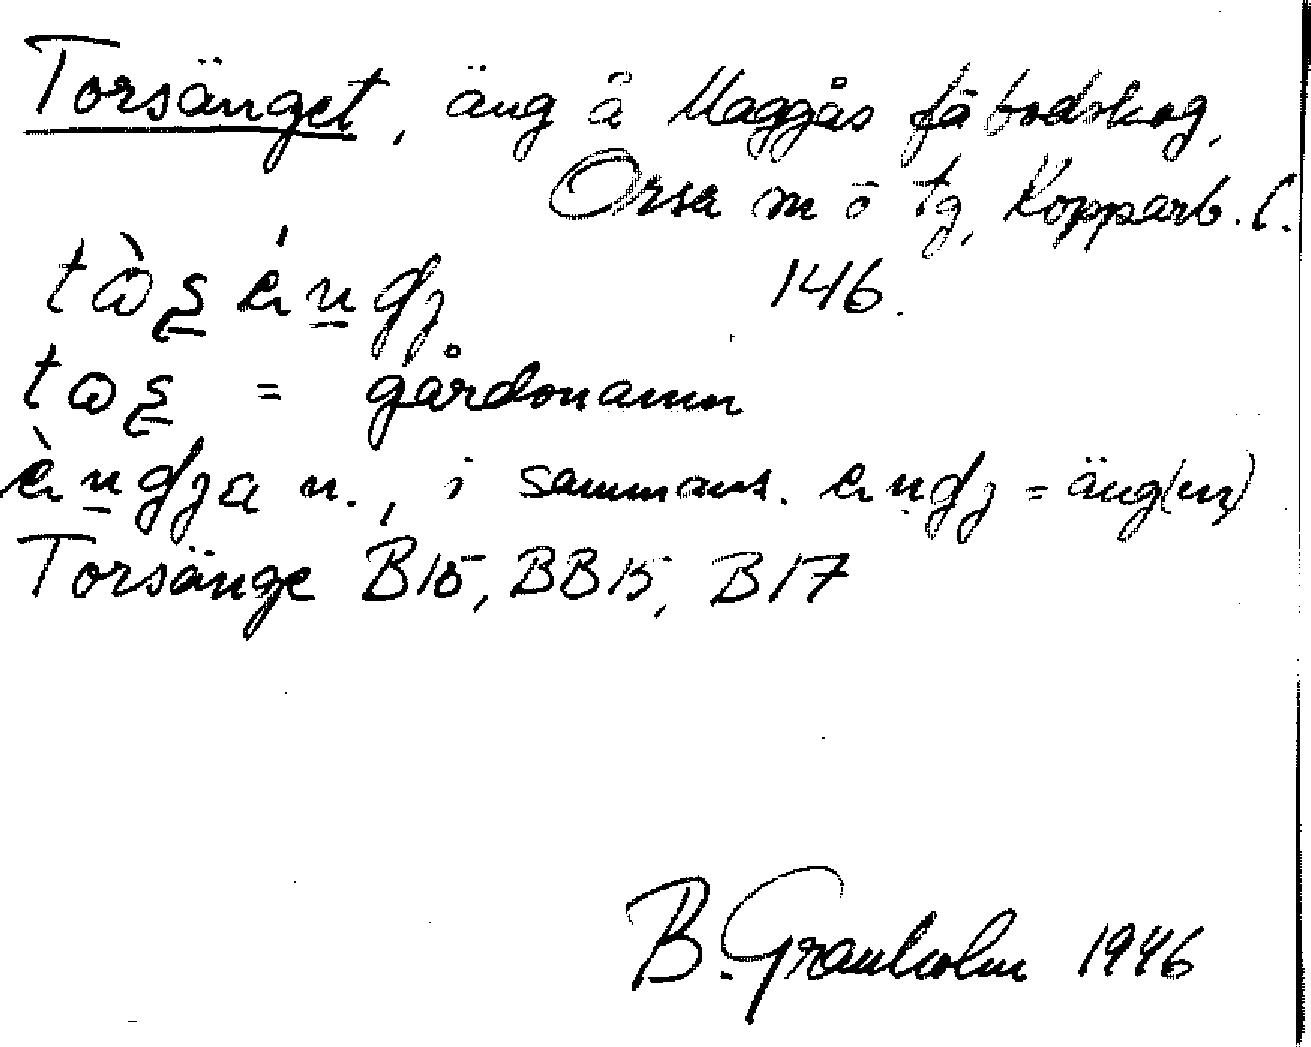 Torsänget, äng å Maggås fäbodskog,
Orsa sn o tg, Kopparb. l.
146.
= gårdsnamn
n., i sammans. = äng(en)
Torsänge B15, BB15, B17
B. Granholm 1946